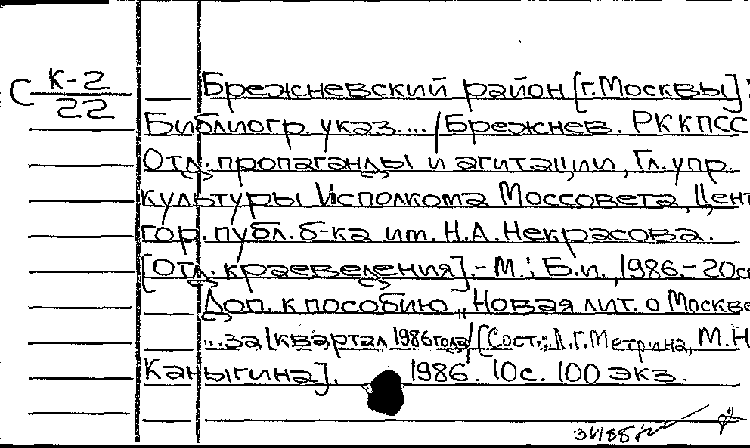 С К-2
22
Брежневский район [г.Москвы]:
Библиогр. указ... / Брежнев. РК КПСС
Отд. пропаганды и агитации, Гл. упр.
культуры Исполкома Моссовета, Цент
гор. публ. б-ка им. Н.А. Некрасова.
[Отд. краеведения]. - М.: Б.и., 1986. - 20см
Доп. к пособию „Новая лит. о Москве
...за I квартал 1986 года / [Сост.: А.Г. Метрина, М.Н
Каныгина]. 1986. 10с. 100 экз.